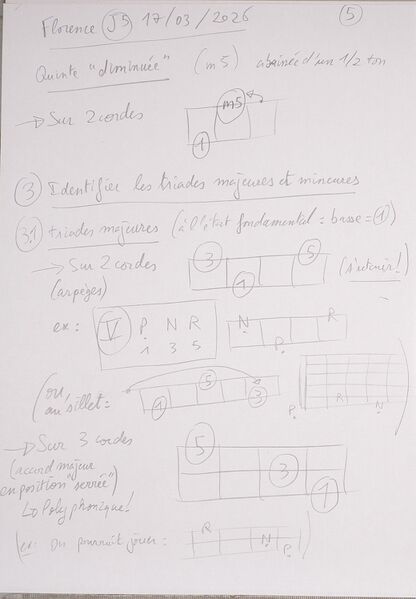 Florence J5 17/03/2026 5
Quinte "diminuée" (m5) abaissée d'un 1/2 ton
→ Sur 2 cordes
m5
1
3 Identifier les triades majeures et mineures
3.1 triades majeures (à l'état fondamental : basse = 1)
→ Sur 2 cordes 3 5
(arpèges) 1 (s'retenir!)
ex : V P N R N R
1 3 5 P
(ou au sillet : 5
1 3
P R N)
→ Sur 3 cordes 5
(accord majeur
en position "serrée") 3
↳ Polyphonique! 1
(ex: On pourrait jouer : R N P)